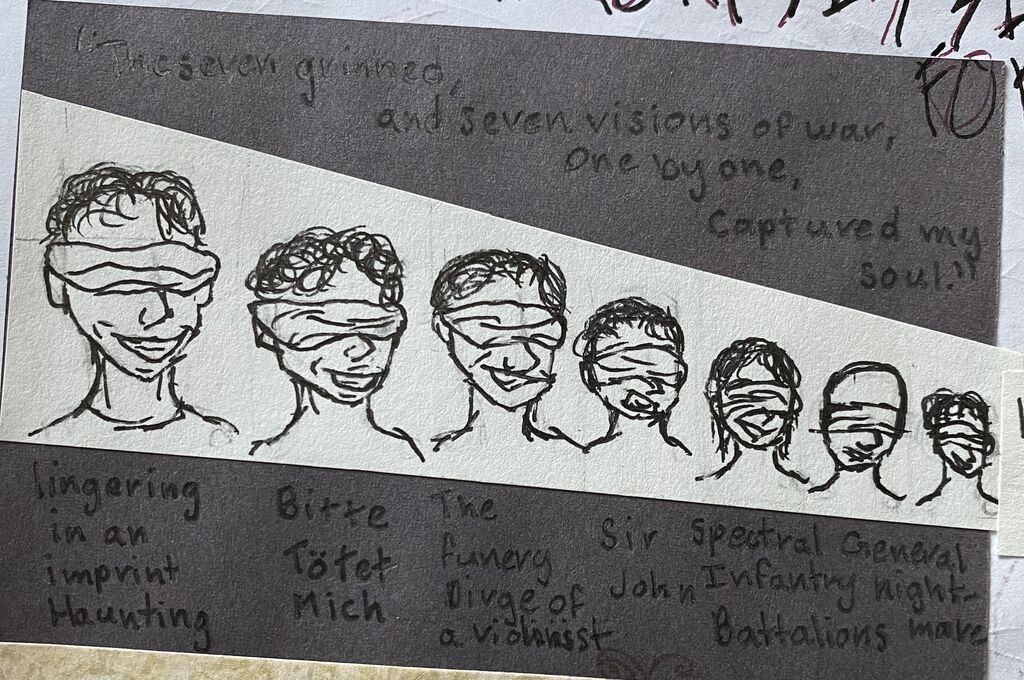 "The seven grinned,
and seven visions of war,
One by one,
Captured my
soul."
lingering
in an
imprint
Haunting
Bitte
Tötet
Mich
The
funery
Dirge of
a violinsst
Sir
John
Spectral
Infantry
Battalions
General
night-
mare
FO